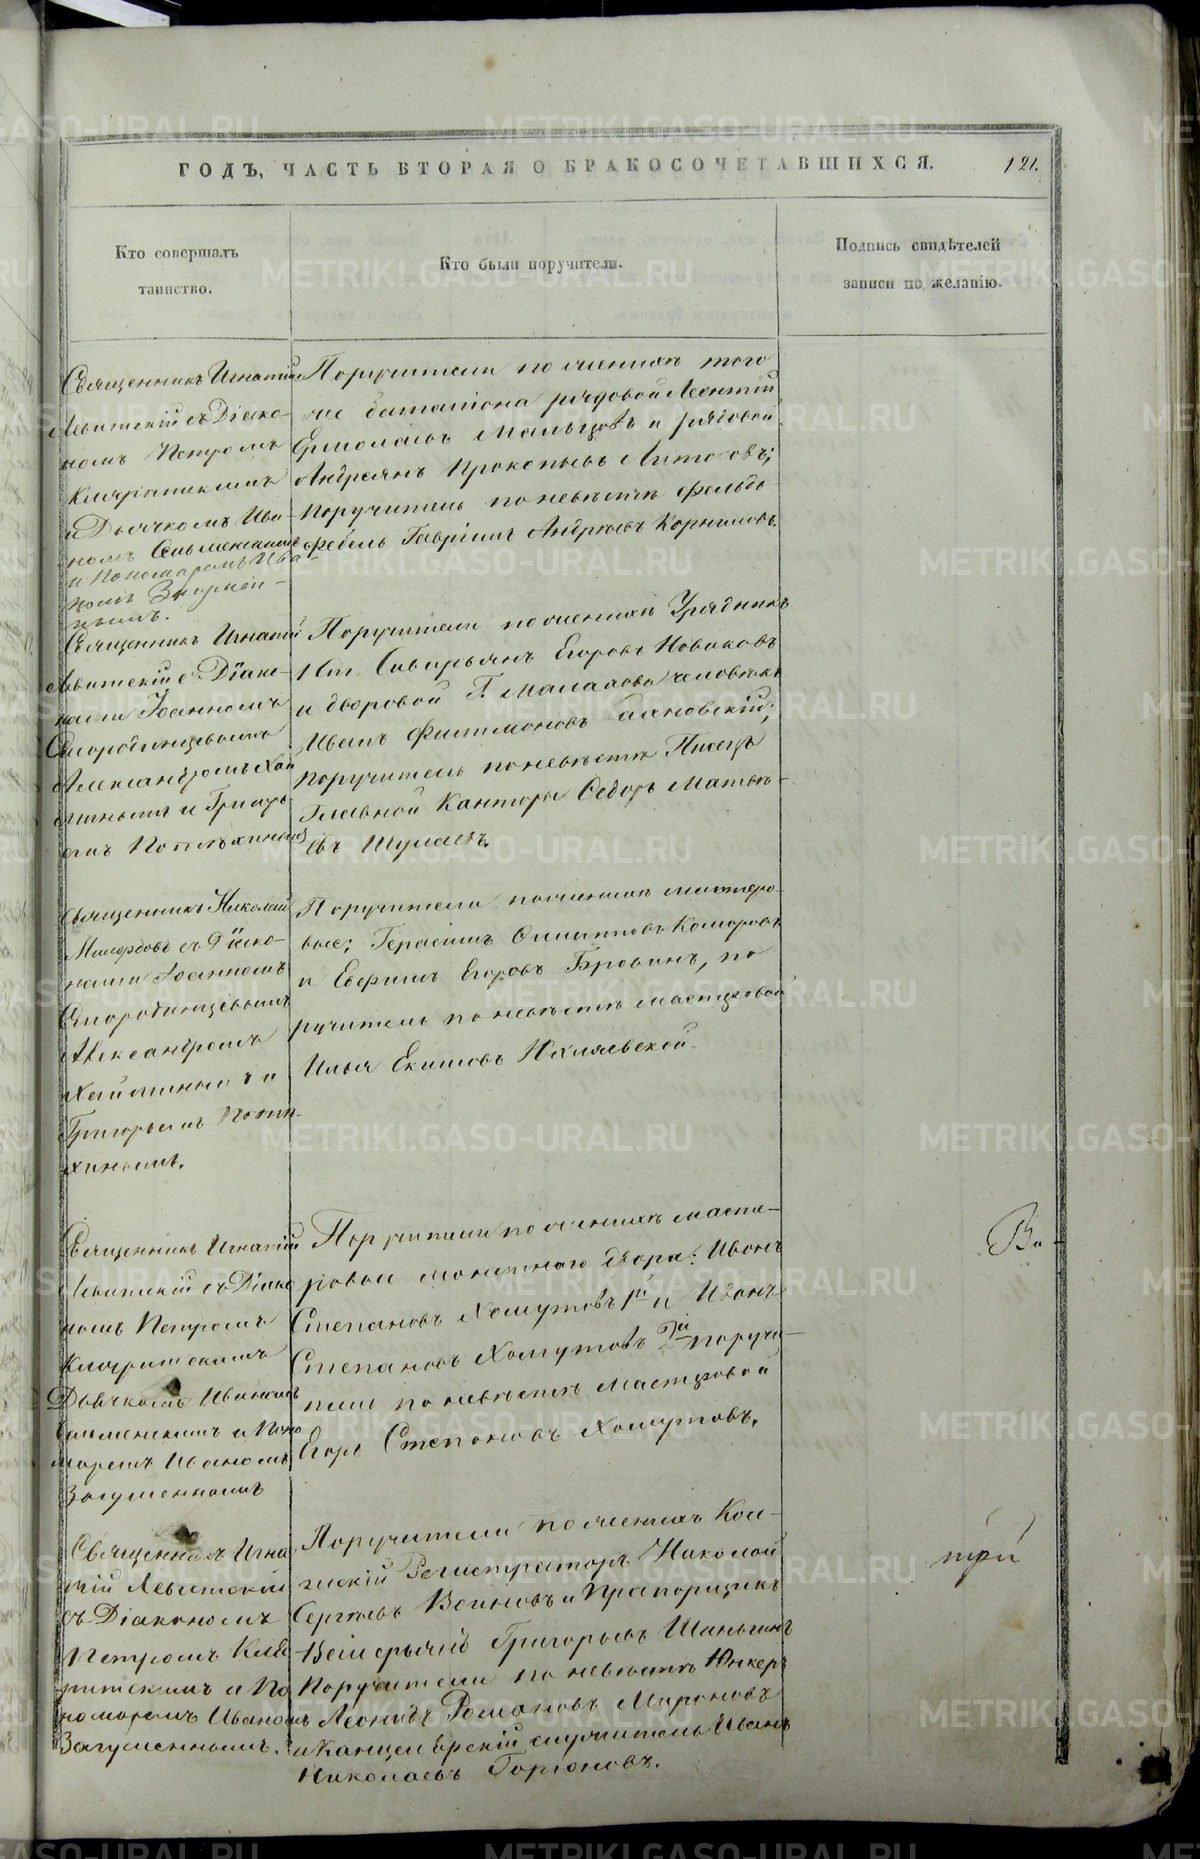 ГОДЪ, ЧАСТЬ ВТОРАЯ О БРАКОСОЧЕТАВШИХСЯ.
121.
Кто совершалъ
таинство.
Кто были поручители.
Подпись свидѣтелей
записи по желанію.
Священникъ Игнатій
Левитскій съ Діако-
номъ Петромъ
и Дьячкомъ Ива-
номъ
и Пономаремъ Ива-
номъ Загумен-
нымъ.
Поручители по женихѣ того
же баталіона рядовой Леонтій
Ермолаевъ Мальцовъ и рядовой
Андреянъ Прокопьевъ
Поручитель по невѣстѣ фельд-
фебель Гавріилъ Андреевъ Корниловъ.
Священникъ Игнатій
Левитскій съ Діако-
нами Іоанномъ
Смородинцевымъ
Александромъ Хай
минымъ и Григорь
емъ Поплыхинымъ
Поручители по женихѣ Урядникъ
1 ст. Северьянъ Егоровъ Новиковъ
и дворовой Г. Малахова человѣкъ
Иванъ Филимоновъ
поручитель по невѣстѣ Писецъ
Главной Канторы Ѳедоръ Матвѣ-
евъ Шулаевъ.
Священникъ Николай
Милордовъ съ Діако-
нами Іоанномъ
Смородинцевымъ
Александромъ
Хайминымъ и
Григорьемъ Поплы-
хинымъ.
Поручители по женихѣ мастеро-
вые: Герасимъ Комаровъ
и Ефимъ Егоровъ Бровинъ, по
ручитель по невѣстѣ мастеровой
Илья Екимовъ
Священникъ Игнатій
Левитскій съ Діако
номъ Петромъ
Дьячкомъ Иваномъ
и Поно
маремъ Иваномъ
Загуменнымъ
Поручители по женихѣ масте-
ровые монетнаго двора: Иванъ
Степановъ Хомутовъ 1й и Иванъ
Степановъ Хомутовъ 2й поручи-
тели по невѣстѣ Мастеровой
Егоръ Степановъ Хомутовъ.
Ва-
Священникъ Игна
тій Левитскій
съ Діакономъ
Петромъ
и По
номаремъ Иваномъ
Загуменнымъ.
Поручители по женихѣ Кол-
лежскій Регистраторъ Николай
Сергѣевъ Воиновъ и Прапорщикъ
Григорьевъ Шаньгинъ
Поручители по невѣстѣ Юнкеръ
Леонидъ Романовъ Мироновъ
и Канцелярскій служитель Иванъ
Николаевъ
трій
METRIKI.GASO-URAL.RU